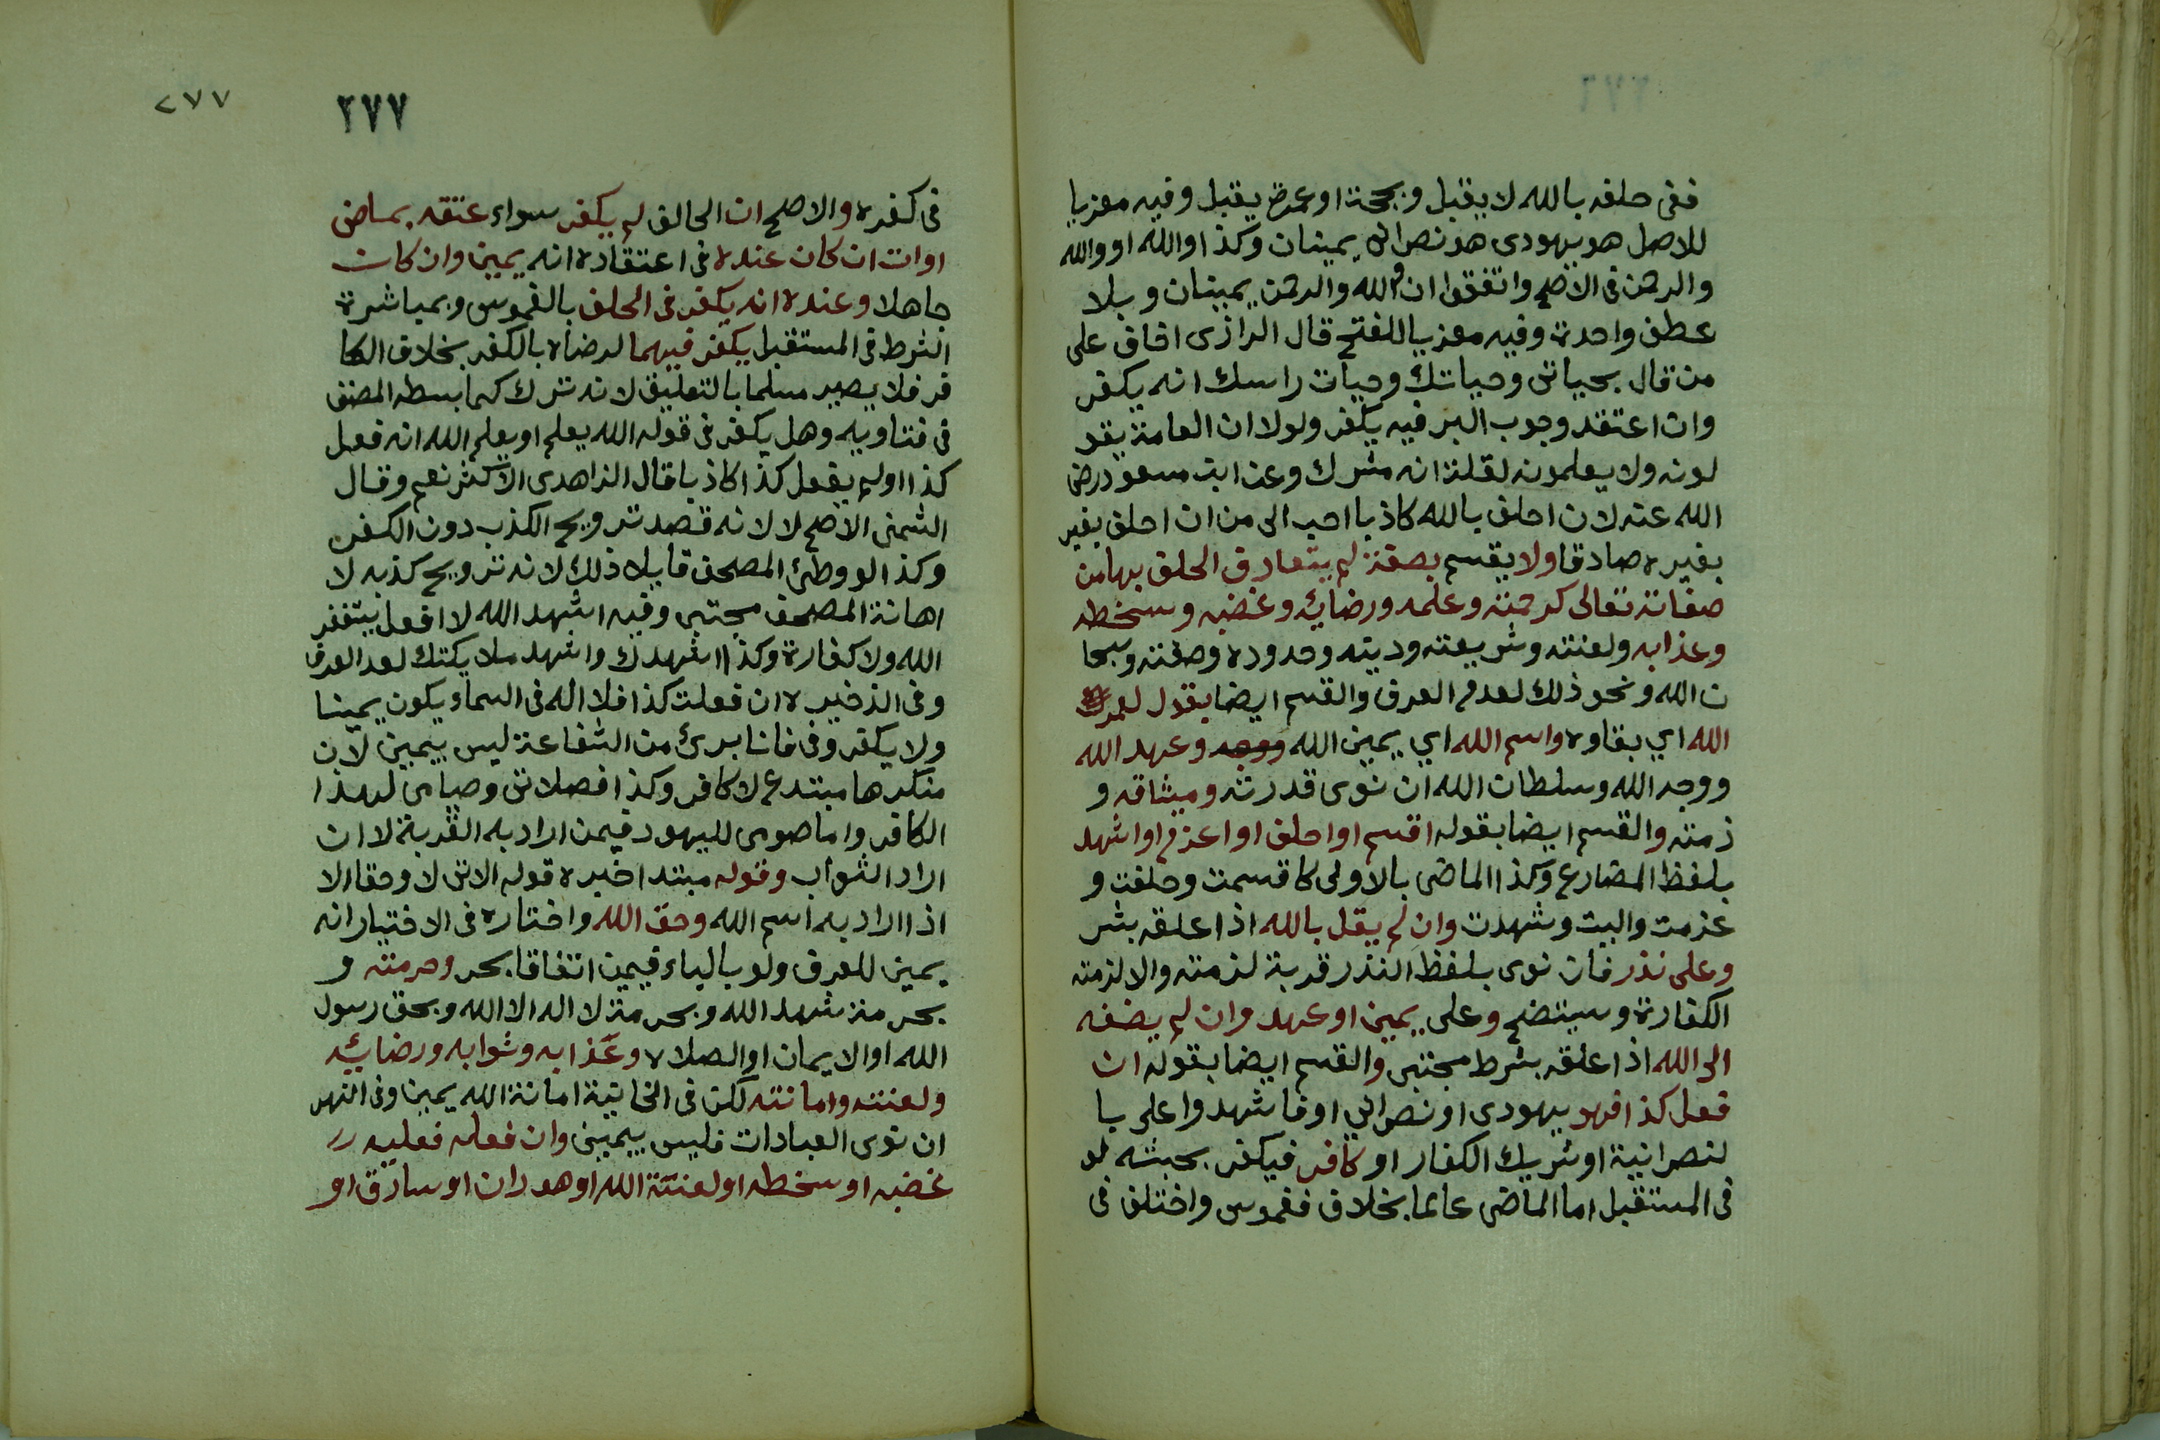 ففى حلفه بالله لا يقبل وبحجة او عمرة يقبل وفيه معزيا
للاصل هو يهودى هو نصرانى يمينان وكذا والله او والله
والرحمن فى الاصح واتفقوا ان والله والرحمن يمينان وبلا
عطف واحدة وفيه معزيا للفتح قال الرازى اخاف على
من قال بحياتى وحياتك وحيات راسك انه يكفر
وان اعتقد وجوب البر فيه يكفر ولولا ان العامة يقو
لونه ولا يعلمونه لقلنا انه مشرك وعن ابن مسعود رضى
الله عنه لان احلف بالله كاذبا احب الى من ان احلف بغير
بغيره صادقا ولا يقسم بصفة لم يتعارف الحلف بها من
صفاته تعالى كرحمته وعلمه ورضائه وغضبه وسخطه
وعذابه ولعنته وشريعته ودينه وحدوده وصفته وسبحا
ن الله ونحو ذلك لعدم العرف والقسم ايضا بقول لعمر
الله اي بقاوه واسم الله اي يمين الله ووجه وعهد الله
ووجه الله وسلطان الله ان نوى قدرته وميثاقه و
ذمته والقسم ايضا بقوله اقسم او احلف او اعزم او اشهد
بلفظ المضارع وكذا الماضى بالاولى كاقسمت وحلفت و
عزمت واليت وشهدت وان لم يقل بالله اذا علقه بشر
وعلى نذر فان نوى بلفظ النذر قربة لزمته والا لزمته
الكفارة وسيتضح وعلى يمين او عهد وان لم يضفه
الى الله اذا علقه بشرط مجتبى والقسم ايضا بقوله ان
فعل كذا فهو يهودى او نصرانى او فاشهدوا على با
لنصرانية او شريك الكفار او كافر فيكفر بحنثه لو
فى المستقبل اما الماضى عالما بخلاف فغموس واختلف فى
٢٧٧
٢٧٧
فى كفره والاصح ان الحالف لم يكفر سواء عتقه بماض
اوات ان كان عنده فى اعتقاده انه يمين وان كان
جاهلا وعنده انه يكفر فى الحلف بالغموس وبمباشرة
الشرط فى المستقبل يكفر فيهما لرضاه بالكفر بخلاف الكا
فر فلا يصير مسلما بالتعليق لانه ترك كما بسطه المصنف
فى فتاويه وهل يكفر فى قوله الله يعلم او يعلم الله انه فعل
كذا اولم يفعل كذا كاذبا قال الزاهدى الاكثر نعم وقال
الشمنى الاصح لا لانه قصد ترويج الكذب دون الكفر
وكذا لو وطئ المصحف قايلا ذلك لانه ترويج كذبه لا
اهانة المصحف مجتبى وفيه اشهد الله لا افعل يستغفر
الله ولا كفارة وكذا اشهدك واشهد ملايكتك لعدم العرف
وفى الذخيره ان فعلت كذا فلا اله فى السماء يكون يمينا
ولا يكفر وفى فانا برئ من الشفاعة ليس بيمين لان
منكرها مبتدع لا كافر وكذا فصلاتى وصيامى لهذا
الكافر واما صومى لليهود فيمين اراد به القربة لا ان
اراد الثواب وقوله مبتدا خبره قوله الاتى لا وحقا الا
اذا اراد به اسم الله وحق الله واختاره فى الاختيار انه
يمين للعرف ولو بالباء فيمين اتفاقا بحر وحرمته و
بحرمة شهد الله وبحرمة لا اله الا الله وبحق رسول
الله او الايمان او الصلاه وعذابه وثوابه ورضائه
ولعنته وامانته لكن فى الخانية امانة الله يمين وفى النهر
ان نوى العبادات فليس بيمين وان فعله فعليه
غضبه او سخطه او لعنة الله او هو زان او سارق او